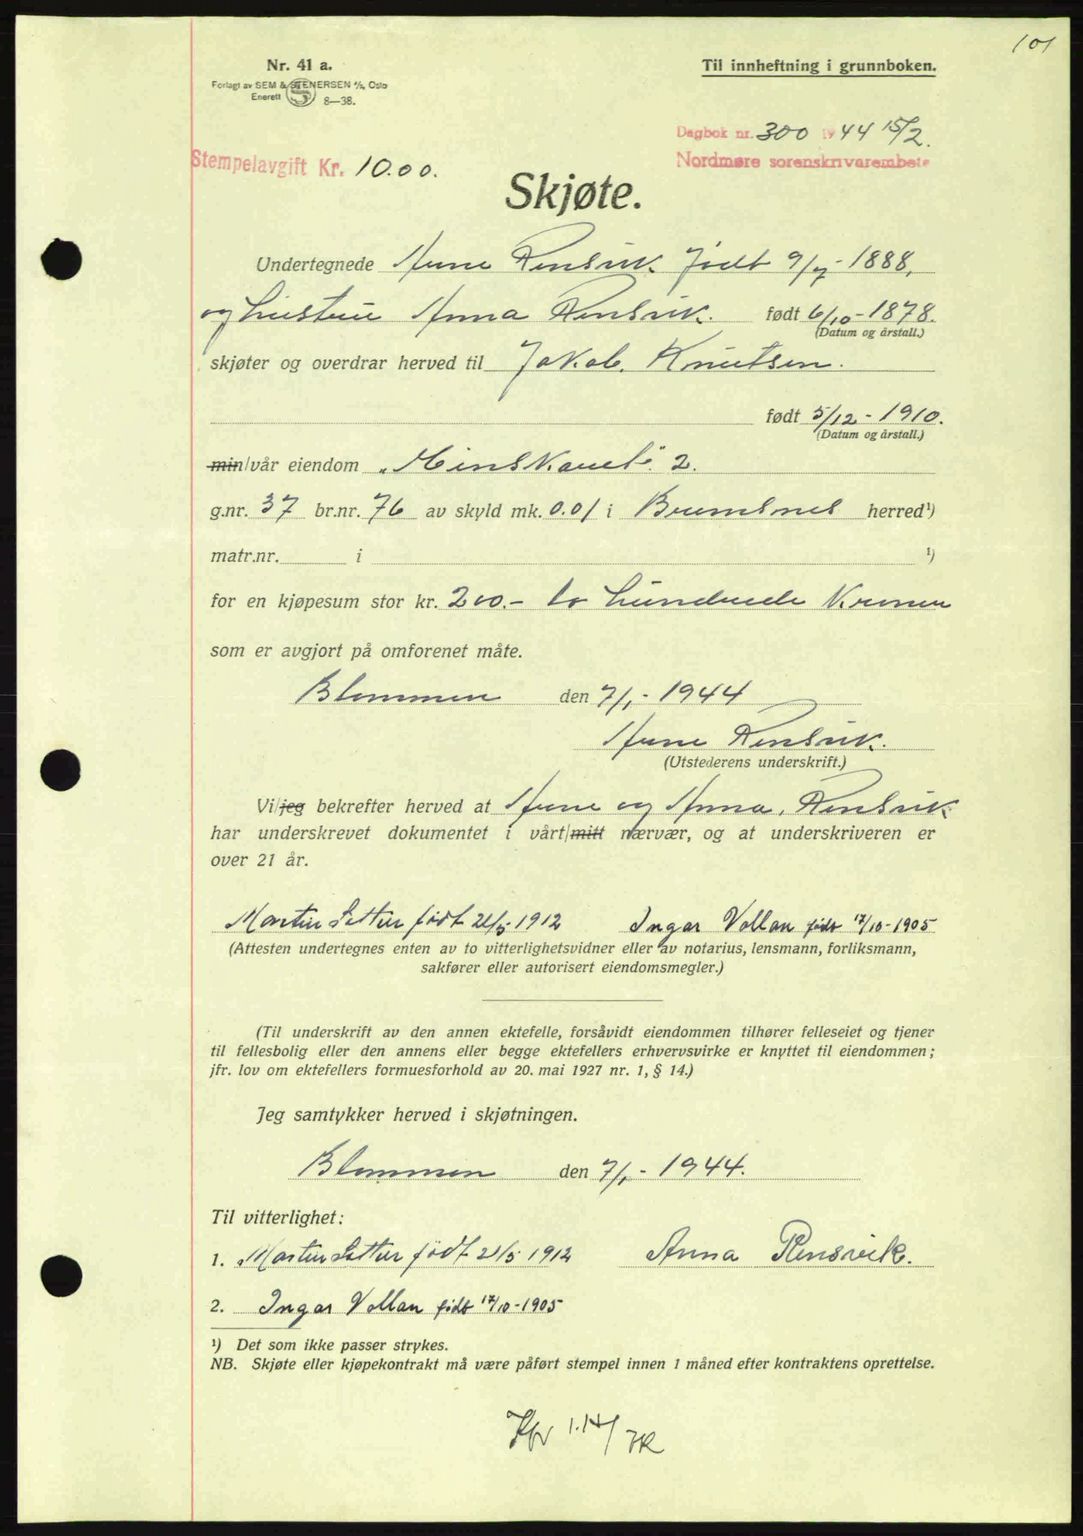 101
Nr. 41 a.
Til innheftning i grunnboken.
Forlagt av SEM & STENERSEN A/S, Oslo
Enerett S 8—38.
Dagbok nr. 300 1944 15/2.
Nordmøre sorenskrivarembete
Stempelavgift Kr. 10.00.
Skjøte.
Undertegnede Arne Rensvik. født 9/7 - 1888,
og hustru Anna Rensvik. født 6/10 - 1878.
(Datum og årstall.)
skjøter og overdrar herved til Jakob. Knutsen.
født 5/12 - 1910.
(Datum og årstall.)
min/vår eiendom 2.
g.nr. 37 br.nr. 76 av skyld mk. 0.01 i Bremsnes herred¹)
matr.nr. i ¹)
for en kjøpesum stor kr. 200.- to hundrede Kroner
som er avgjort på omforenet måte.
Blommen den 7/1 - 1944
Arne Rensvik.
(Utstederens underskrift.)
Vi/jeg bekrefter herved at Arne og Anna, Rensvik
har underskrevet dokumentet i vårt/mitt nærvær, og at underskriveren er
over 21 år.
Martin Sætter født 21/5 1912 Ingar Vollan født 17/10-1905
(Attesten undertegnes enten av to vitterlighetsvidner eller av notarius, lensmann, forliksmann,
sakfører eller autorisert eiendomsmegler.)
(Til underskrift av den annen ektefelle, forsåvidt eiendommen tilhører felleseiet og tjener
til fellesbolig eller den annens eller begge ektefellers erhvervsvirke er knyttet til eiendommen;
jfr. lov om ektefellers formuesforhold av 20. mai 1927 nr. 1, § 14.)
Jeg samtykker herved i skjøtningen.
Blommen den 7/1 - 1944.
Til vitterlighet:
1. Martin Sætter født 21/5 1912 Anna Rensvik.
2. Ingar Vollan født 17/10-1905
¹) Det som ikke passer strykes.
NB. Skjøte eller kjøpekontrakt må være påført stempel innen 1 måned efter kontraktens oprettelse.